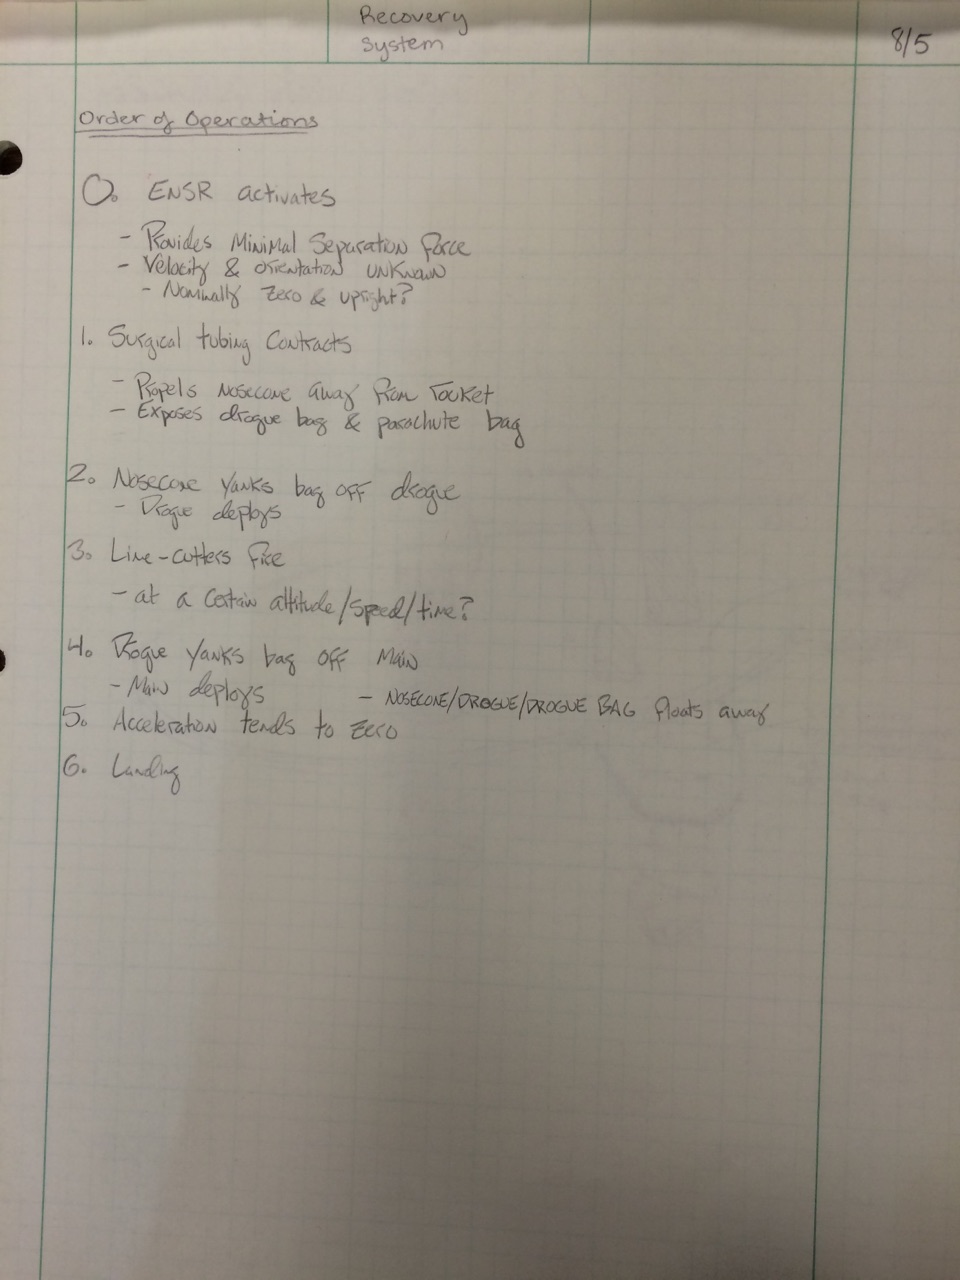 Recovery
System
8/5
Order of Operations
0. ENSR activates
- Provides Minimal Separation force
- Velocity & orientation unknown
- Nominally zero & upright?
1. Surgical tubing Contracts
- Propels nosecone away from rocket
- Exposes drogue bag & parachute bag
2. Nosecone yanks bag off drogue
- Drogue deploys
3. Line-cutters fire
- at a certain altitude/speed/time?
4. Drogue yanks bag off Main
- Main deploys - NOSECONE/DROGUE/DROGUE BAG floats away
5. Acceleration tends to zero
6. Landing